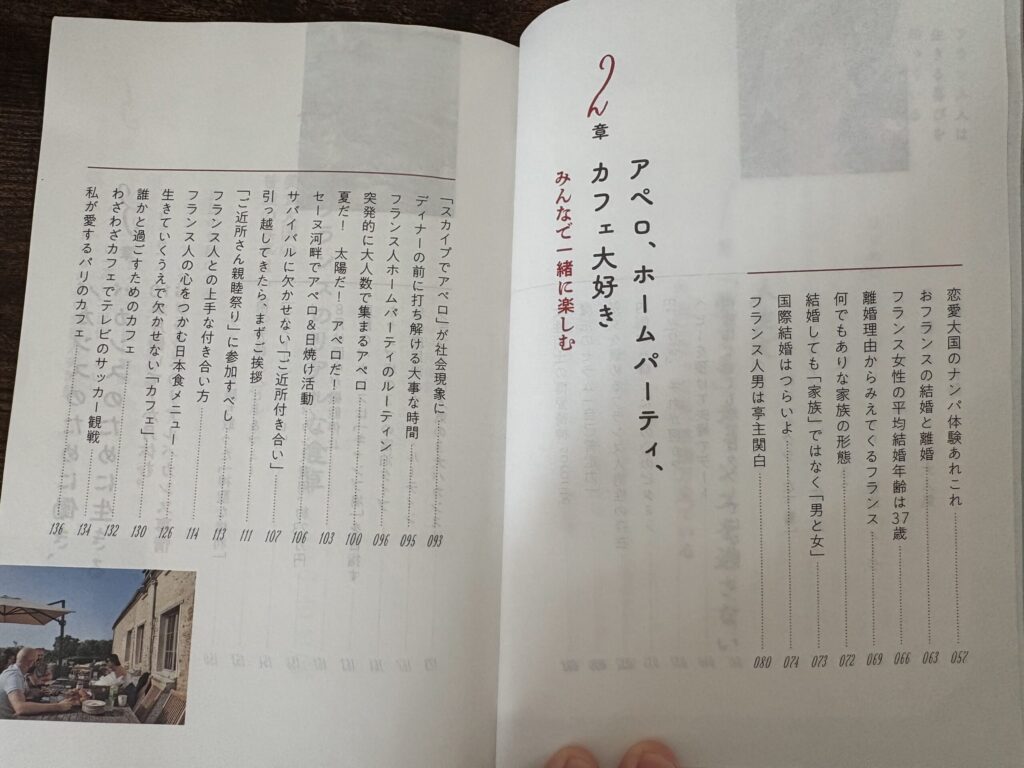 恋愛大国のナンパ体験あれこれ 057
おフランスの結婚と離婚 063
フランス女性の平均結婚年齢は37歳 066
離婚理由からみえてくるフランス 069
何でもありな家族の形態 072
結婚しても「家族」ではなく「男と女」 073
国際結婚はつらいよ 074
フランス人男は亭主関白 080
2章
アペロ、ホームパーティ、
カフェ大好き
みんなで一緒に楽しむ
「スカイプでアペロ」が社会現象に 093
ディナーの前に打ち解ける大事な時間 095
フランス人ホームパーティのルーティン 096
突発的に大人数で集まるアペロ 100
夏だ! 太陽だ! アペロだ! 103
セーヌ河畔でアペロ&日焼け活動 106
サバイバルに欠かせない「ご近所付き合い」 107
引っ越してきたら、まずご挨拶 111
「ご近所さん親睦祭り」に参加すべし 113
フランス人との上手な付き合い方 114
フランス人の心をつかむ日本食メニュー 126
生きていくうえで欠かせない「カフェ」 130
誰かと過ごすためのカフェ 132
わざわざカフェでテレビのサッカー観戦 134
私が愛するパリのカフェ 136